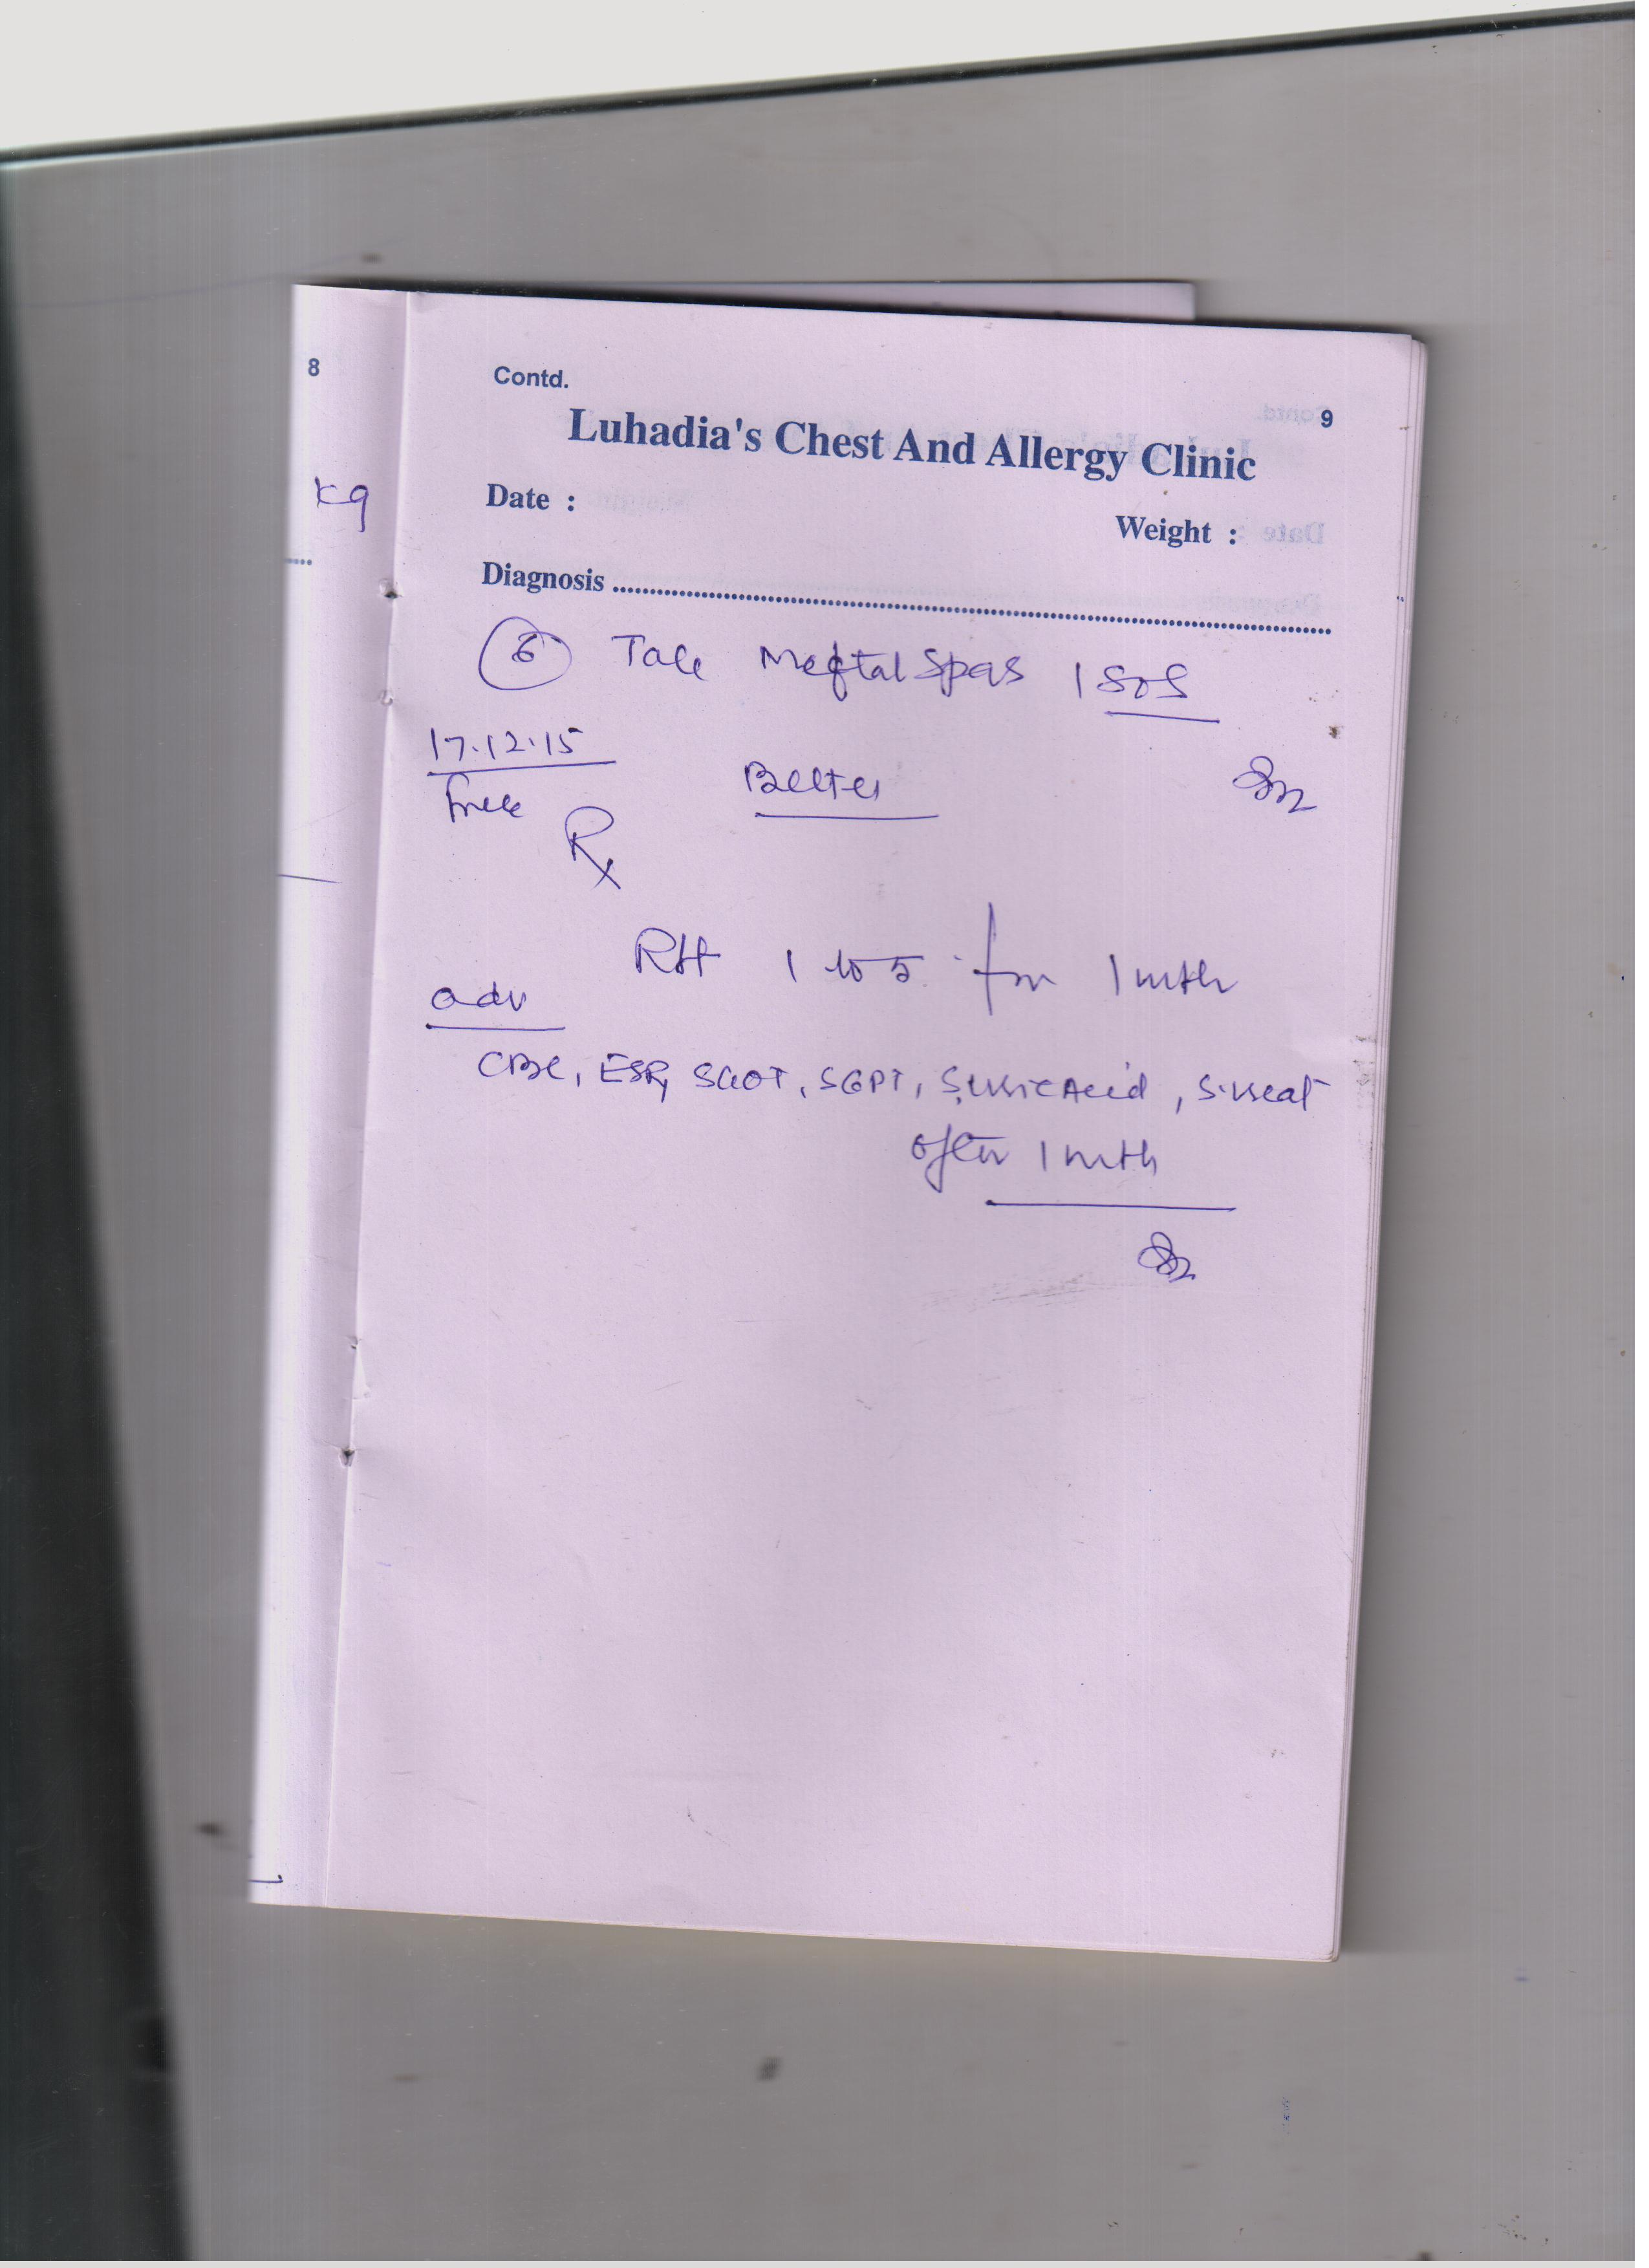 8
Kg
Contd.
9
Luhadia's Chest And Allergy Clinic
Date :
Weight :
Diagnosis
6 Tab Meftal Spas 1 SOS
17.12.15
free
Better
Rx
Rpt 1 to 5 for 1 mth
adv
CBC, ESR, SGOT, SGPT, S.Uric Acid, S.creat
after 1 mth